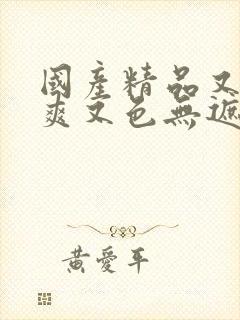 國產精品又
爽又色無遮
黃愛平